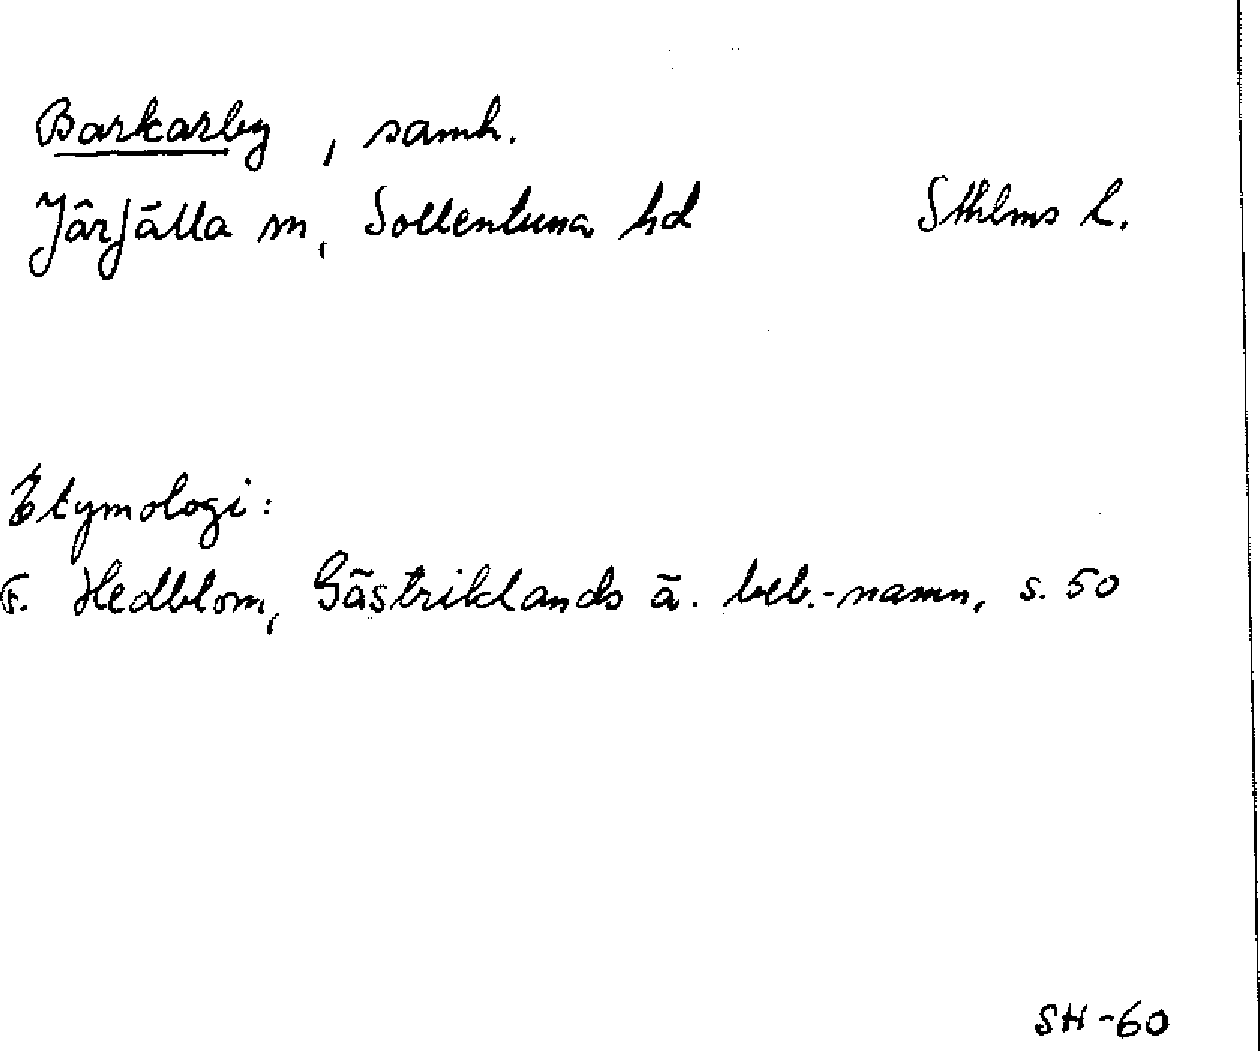 Barkarby, samh.
Järfälla sn, Sollentuna hd Sthlms l.
Etymologi:
F. Hedblom, Gästriklands ä. beb.-namn, s. 50
SH-60